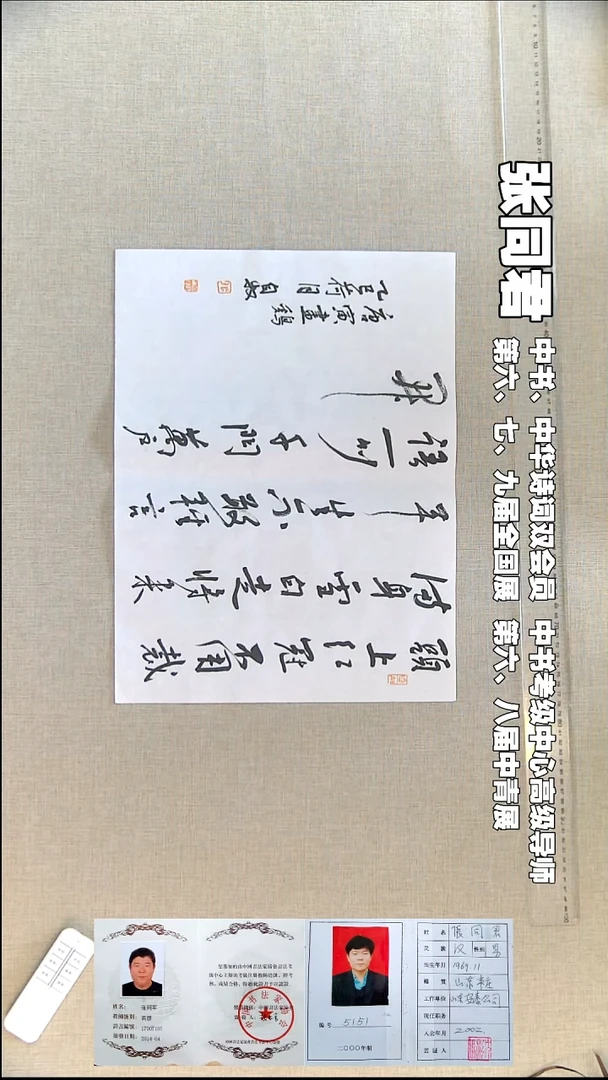 张同君
中书、中华诗词双会员 中书考级中心高级导师
第六、七、九届全国展 第六、八届中青展
头上红冠不用裁
满身雪白走将来
平生不敢轻言
语一叫千门万户
开
唐寅画鸡
乙巳荷月
姓名：
教师级别：高级
证书编号：
颁发日期：2014-04
编号 5151
二〇〇〇年制
姓名 张同君
民族 汉 性别 男
出生年月 1969.11
籍贯 山东
工作单位
现任职务
入会年月 2002
签证人